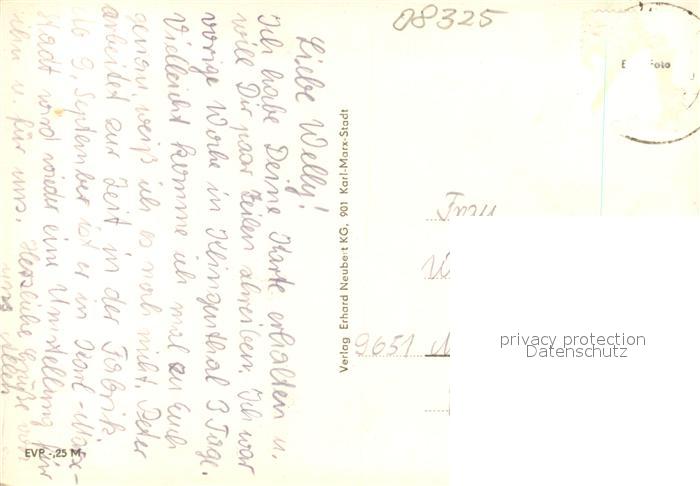 08325
Liebe Welly!
Ich habe Deine Karte erhalten u.
will Dir paar Zeilen schreiben. Ich war
vorige Woche in Klingenthal 3 Tage.
Vielleicht komme ich mal zu Euch
genau weiß ich es noch nicht. Peter
arbeitet zur Zeit in der Fabrik
Ab 9. September ist er in Karl-Marx-
Stadt wird wieder eine Umstellung für
ihn u. für uns. Herzliche Grüße von
uns allen
Verlag Erhard Neubert KG, 901 Karl-Marx-Stadt
EVP -,25 M
Foto
Frau
9651
privacy protection
Datenschutz